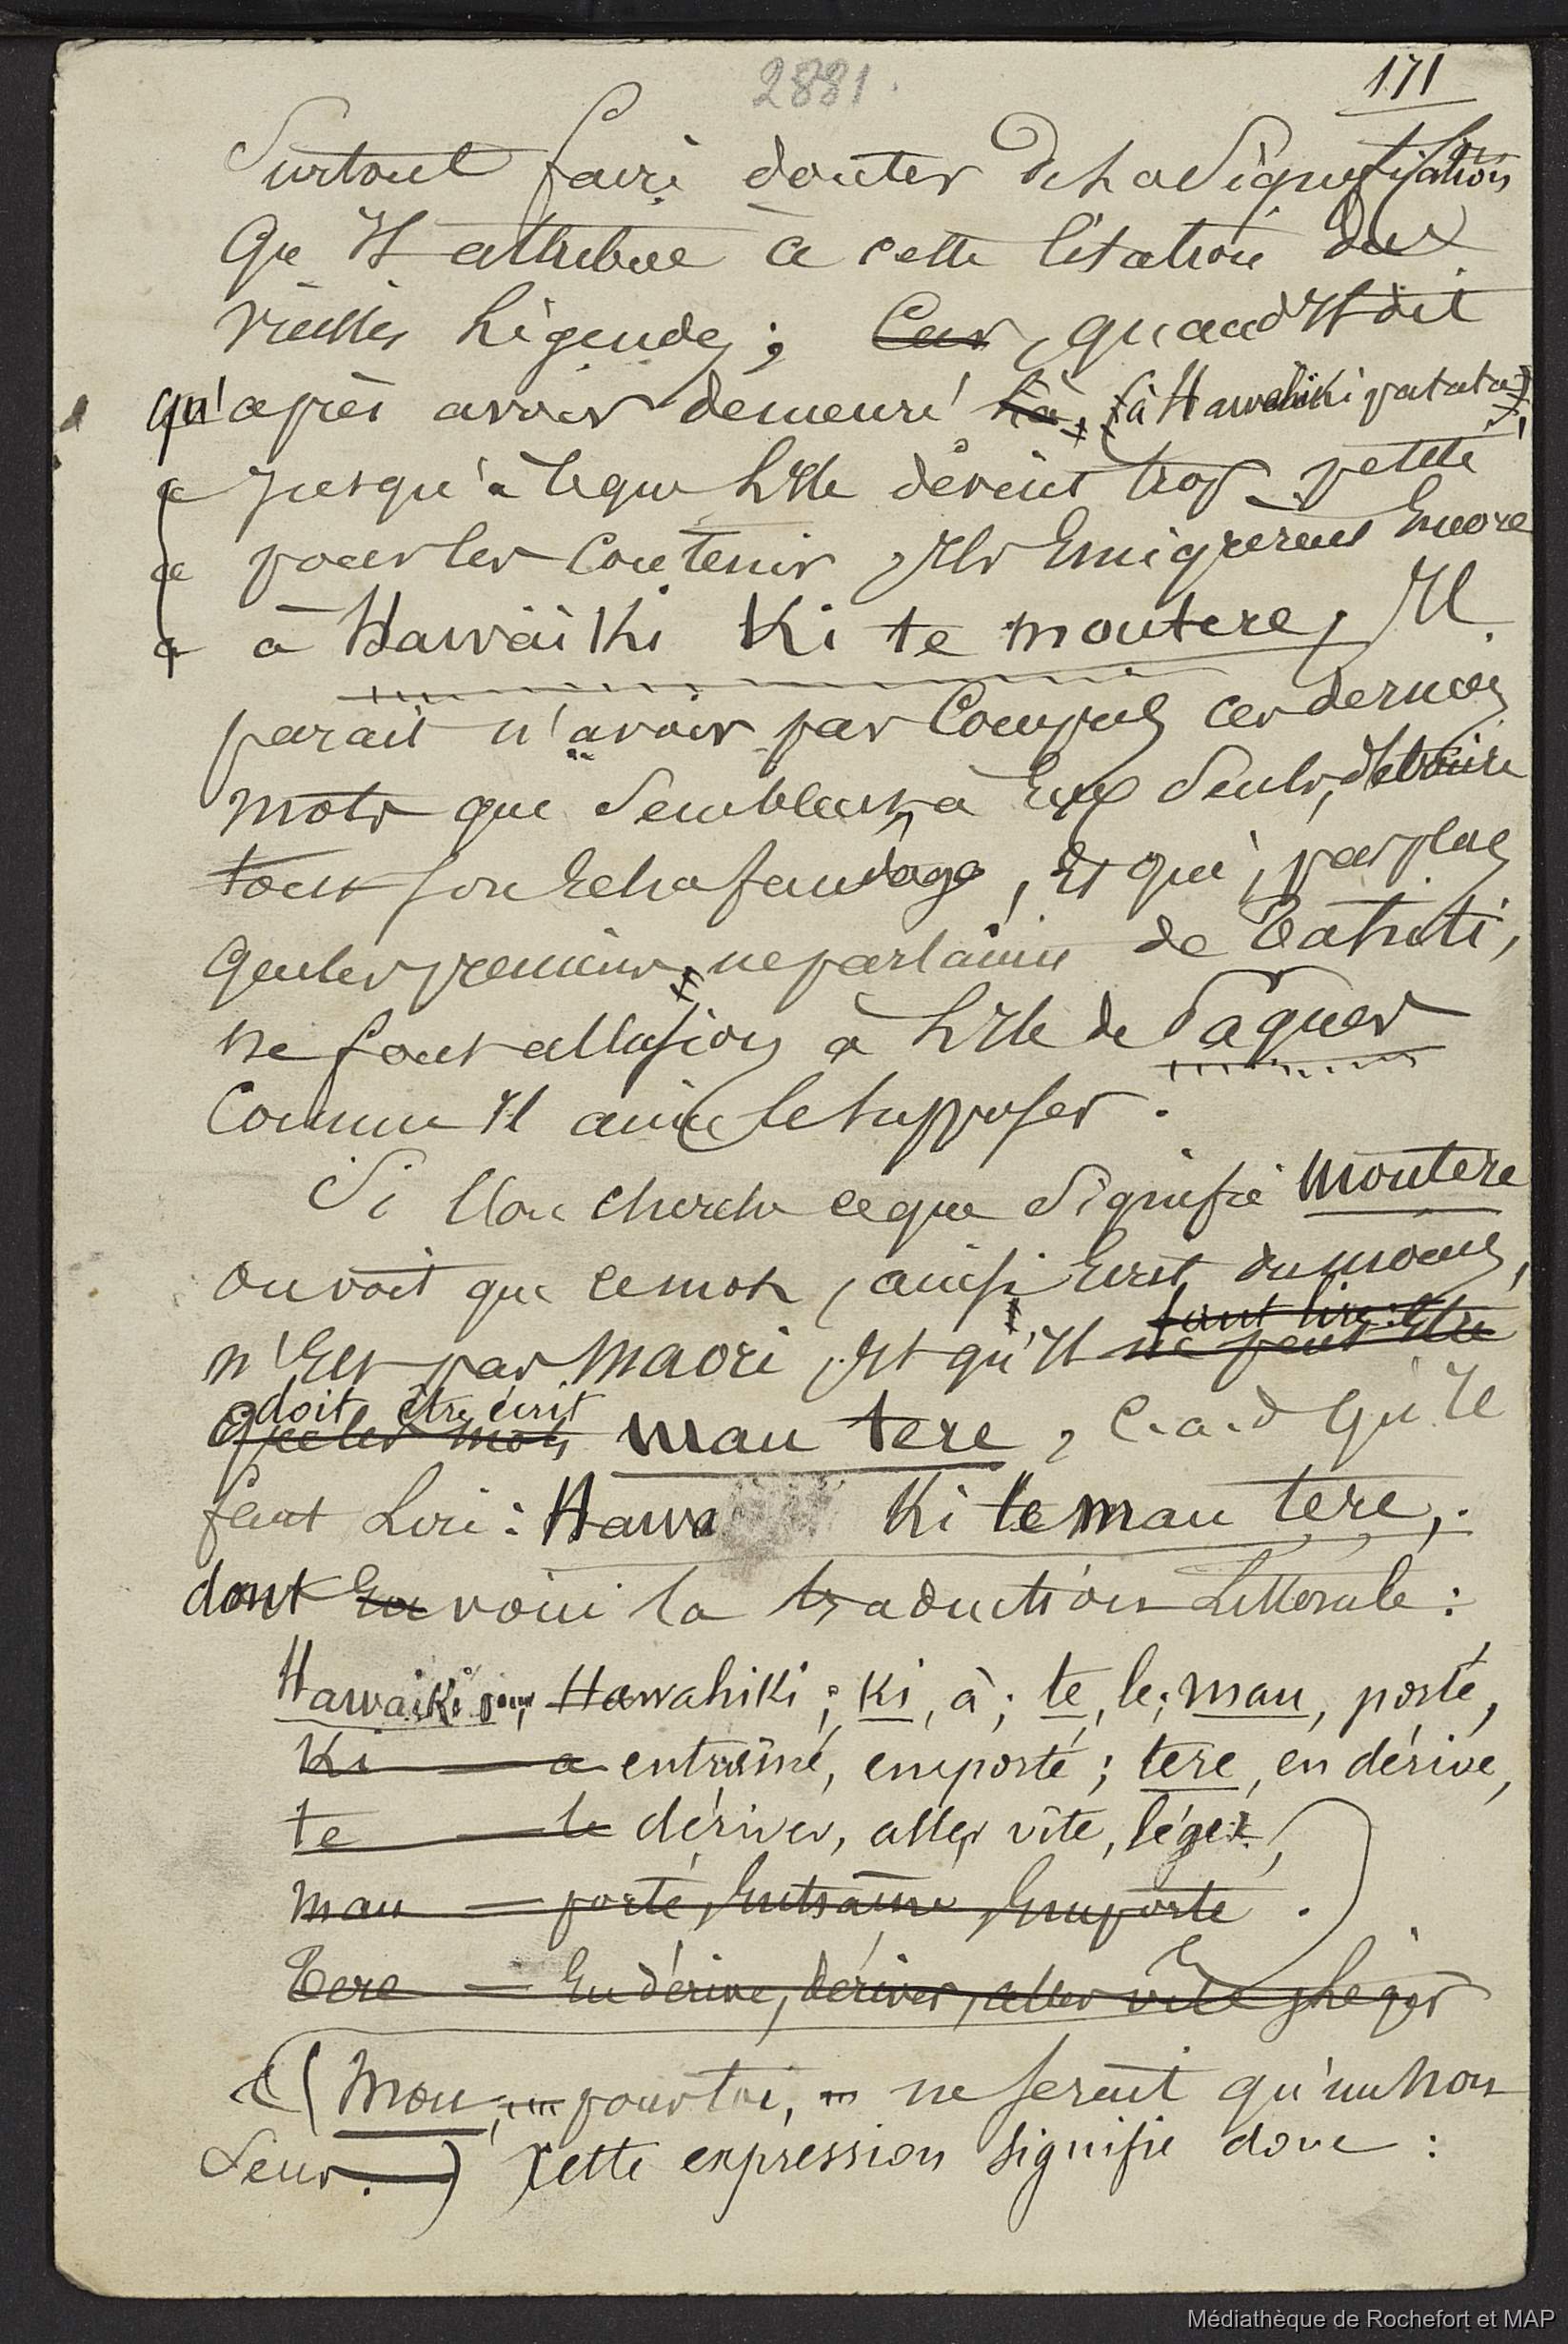 2881.
171
Surtout faire douter de la signification
qu'il attribue à cette citation des
vieilles légendes ; Car, quand il dit
qu'après avoir demeuré là, (à Hawahiki patata),
« jusqu'à ce que l'Ile devint trop petite
« pour les contenir, ils émigrèrent encore
« à Hawaïki Ki te moutere, Il
parait n'avoir pas compris ces derniers
mots que semblent à eux seuls, détruire
tout son échafaudage, et qui, pas plus
que les premiers ne parlaient de Tahiti,
ne font allusion à l'Ile de Pâques
comme il aime le supposer.
Si l'on cherche ce que signifie moutere
on voit que ce mot, ainsi écrit, du moins,
faut lire :
n'est pas maori, et qu'il ne peut être
doit être écrit
que les mots mau tere, c.a.d qu'il
faut lire : Hawa Ki te mau tere,
dont en voici la traduction littérale :
Hawaiki pour Hawahiki ; ki, à ; te, le ; mau, porté,
Ki — a entraîné, emporté ; tere, en dérive,
te — le dériver, aller vite, léger,
mau — porté, entraîné, emporté.
Tere — En dérive, dériver, aller vite, léger
(Mou, pour toi, ne serait qu'un non
sens.) Cette expression signifie donc :
Médiathèque de Rochefort et MAP